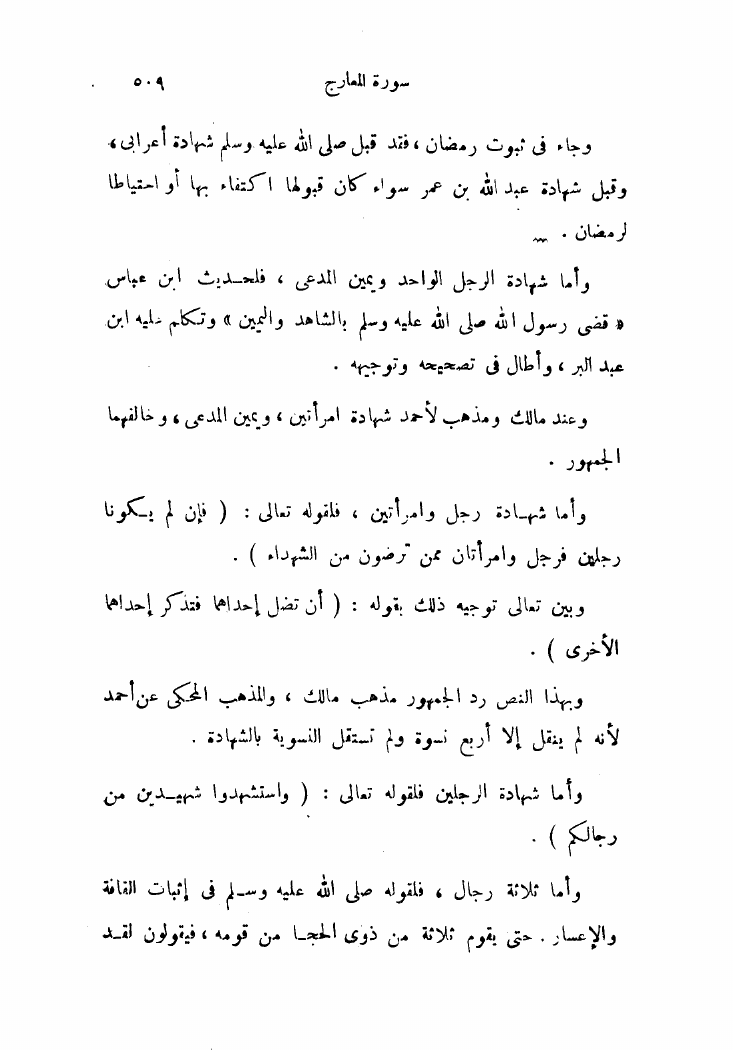 سورة المعارج ٥٠٩
وجاء فى ثبوت رمضان ، فقد قبل صلى الله عليه وسلم شهادة أعرابى ،
وقبل شهادة عبد الله بن عمر سواء كان قبولها اكتفاء بها أو احتياطا
لرمضان .
وأما شهادة الرجل الواحد ويمين المدعى ، فلحديث ابن عباس
« قضى رسول الله صلى الله عليه وسلم بالشاهد واليمين » وتكلم عليه ابن
عبد البر ، وأطال فى تصحيحه وتوجيهه .
وعند مالك ومذهب لأحمد شهادة امرأتين ، ويمين المدعى ، وخالفهما
الجمهور .
وأما شهادة رجل وامرأتين ، فلقوله تعالى : ( فإن لم يكونا
رجلين فرجل وامرأتان ممن ترضون من الشهداء ) .
وبين تعالى توجيه ذلك بقوله : ( أن تضل إحداهما فتذكر إحداهما
الأخرى ) .
وبهذا النص رد الجمهور مذهب مالك ، والمذهب المحكى عن أحمد
لأنه لم ينقل إلا أربع نسوة ولم تستقل النسوية بالشهادة .
وأما شهادة الرجلين فلقوله تعالى : ( واستشهدوا شهيدين من
رجالكم ) .
وأما ثلاثة رجال ، فلقوله صلى الله عليه وسلم فى إثبات الفاقة
والإعسار . حتى يقوم ثلاثة من ذوى الحجا من قومه ، فيقولون لقد